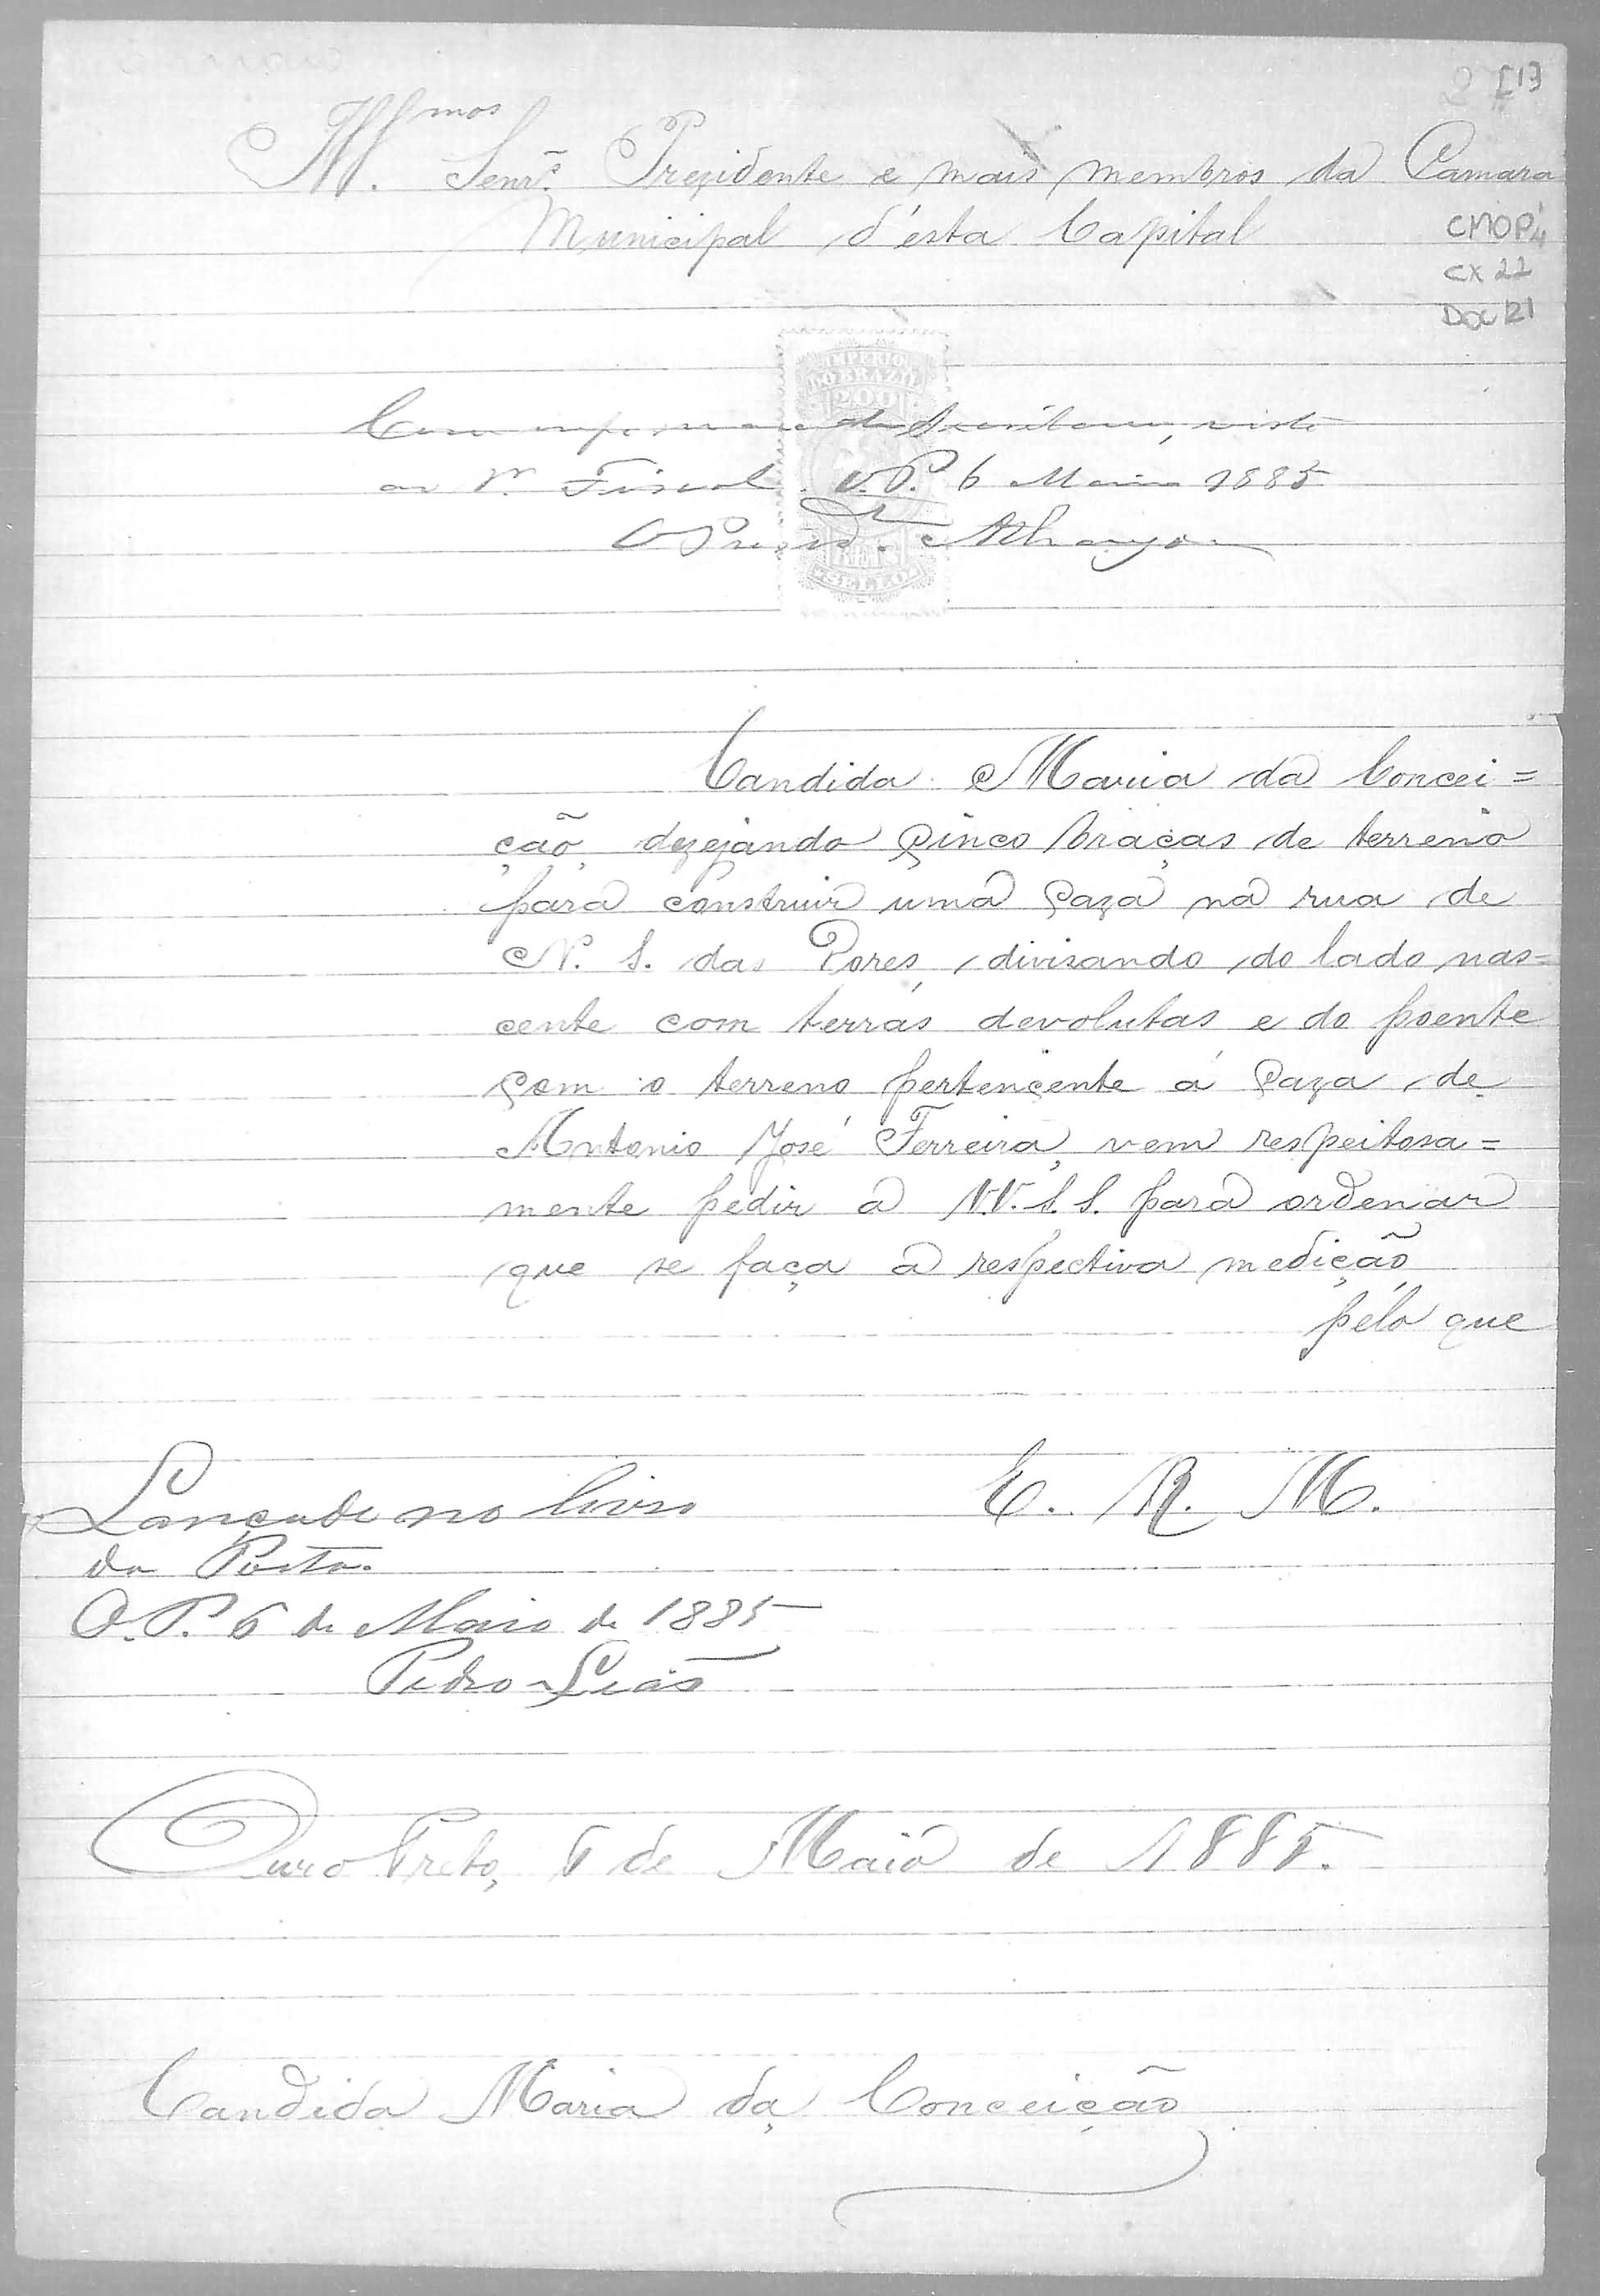 [13
Ill.mos Senr.s Prezidente e mais membros da Camara
Municipal d'ésta Capital
CMOP
CX 22
DOC 21
IMPERIO
DO BRAZIL
200
Com informação da Secretaria, visto
ao Sr. Fiscal. O. P. 6 Maio 1885
O Presid.
REIS
SELLO
Candida Maria da Concei=
ção, dezejando çinco braças de terreno
para construir uma çaza na rua de
N. S. das Dores, divisando do lado nas=
cente com terras devolutas e do poente
çom o terreno pertençente á çaza de
Antonio José Ferreira, vem respeitosa=
mente pedir a V.V. S. S. para ordenar
que se faça a respectiva medição,
pélo que
E. R. M.
Lançado no livro
da Porta.
O. P. 6 de Maio de 1885
Pedro Leão
Ouro Preto, 6 de Maio de 1885.
Candida Maria da Conceição